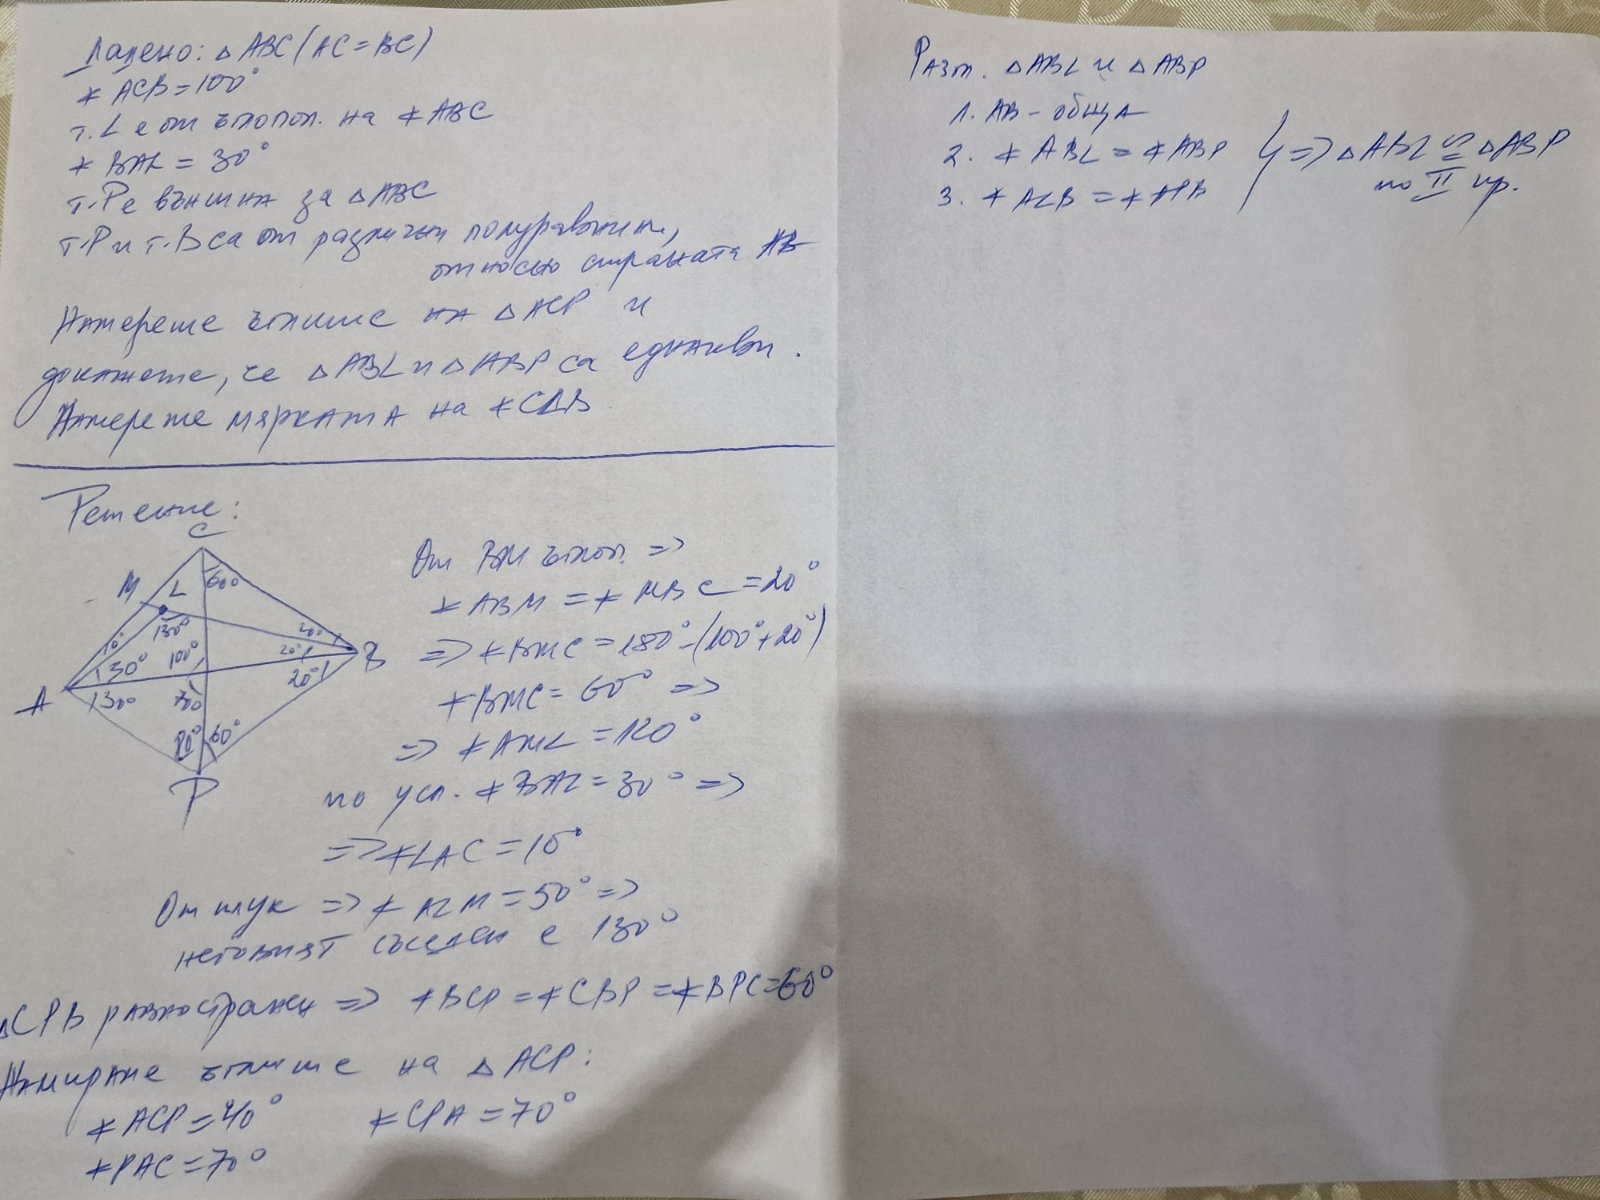 Дадено: △ABC (AC = BC)
∢ ACB = 100°
т. L е от ъглопол. на ∢ ABC
∢ BAL = 30°
т. P е външна за △ABC
т. P и т. B са от различни полуравнини,
относно страната AB
Намерете ъглите на △ ACP и
докажете, че △ABL и △ABP са еднакви.
Намерете мярката на ∢
Решение:
C
60°
M L
130°
10°
20°
30°
100°
20°
B
20°
A
130°
70°
60°
P
От BM ъглоп. =>
∢ ABM = ∢ MBC = 20°
=> ∢ BMC = 180° - (100° + 20°)
∢ BMC = 60° =>
=> ∢ AML = 120°
по усл. ∢ BAL = 30° =>
=> ∢ LAC = 10°
От тук => ∢ ALM = 50° =>
неговият съседен е 130°
△CPB равностранен => ∢ BCP = ∢ CBP = ∢ BPC = 60°
Намираме ъглите на △ ACP:
∢ ACP = 40° ∢ CPA = 70°
∢ PAC = 70°
Разгл. △ABL и △ABP
1. AB - обща
2. ∢ ABL = ∢ ABP } => △ABL ≅ △ABP
3. ∢ ALB = ∢ APB по II пр.